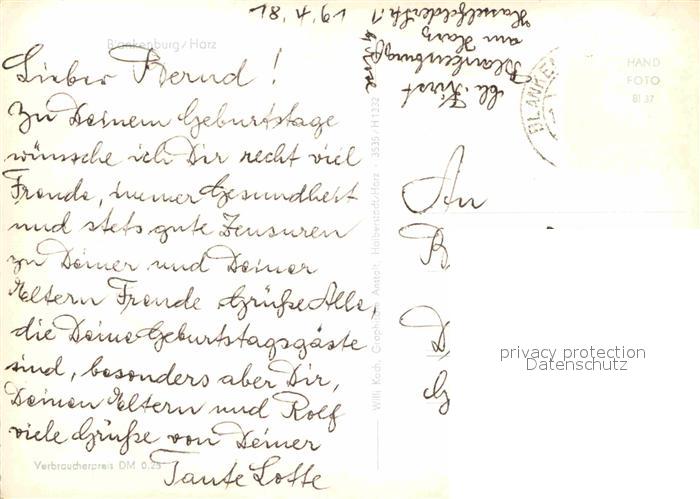 18.4.61
Blankenburg/Harz
Lieber Bernd!
Zu Deinem Geburtstage
wünsche ich Dir recht viel
Freude, immer Gesundheit
und stets gute Zensuren
zu Deiner und Deiner
Eltern Freude Grüße Alle,
die Deine Geburtstagsgäste
sind, besonders aber Dir,
Deinen Eltern und Rolf
viele Grüße von Deiner
Tante Lotte
Verbraucherpreis DM 0.25
Willi Koch, Graphische Anstalt, Halberstadt/Harz · 3535/H 1232
Blankenburg
am Harz
Hasselfelderstr. 1
BLANKE
HAND
FOTO
BI 37
An
B
D,
G
privacy protection
Datenschutz